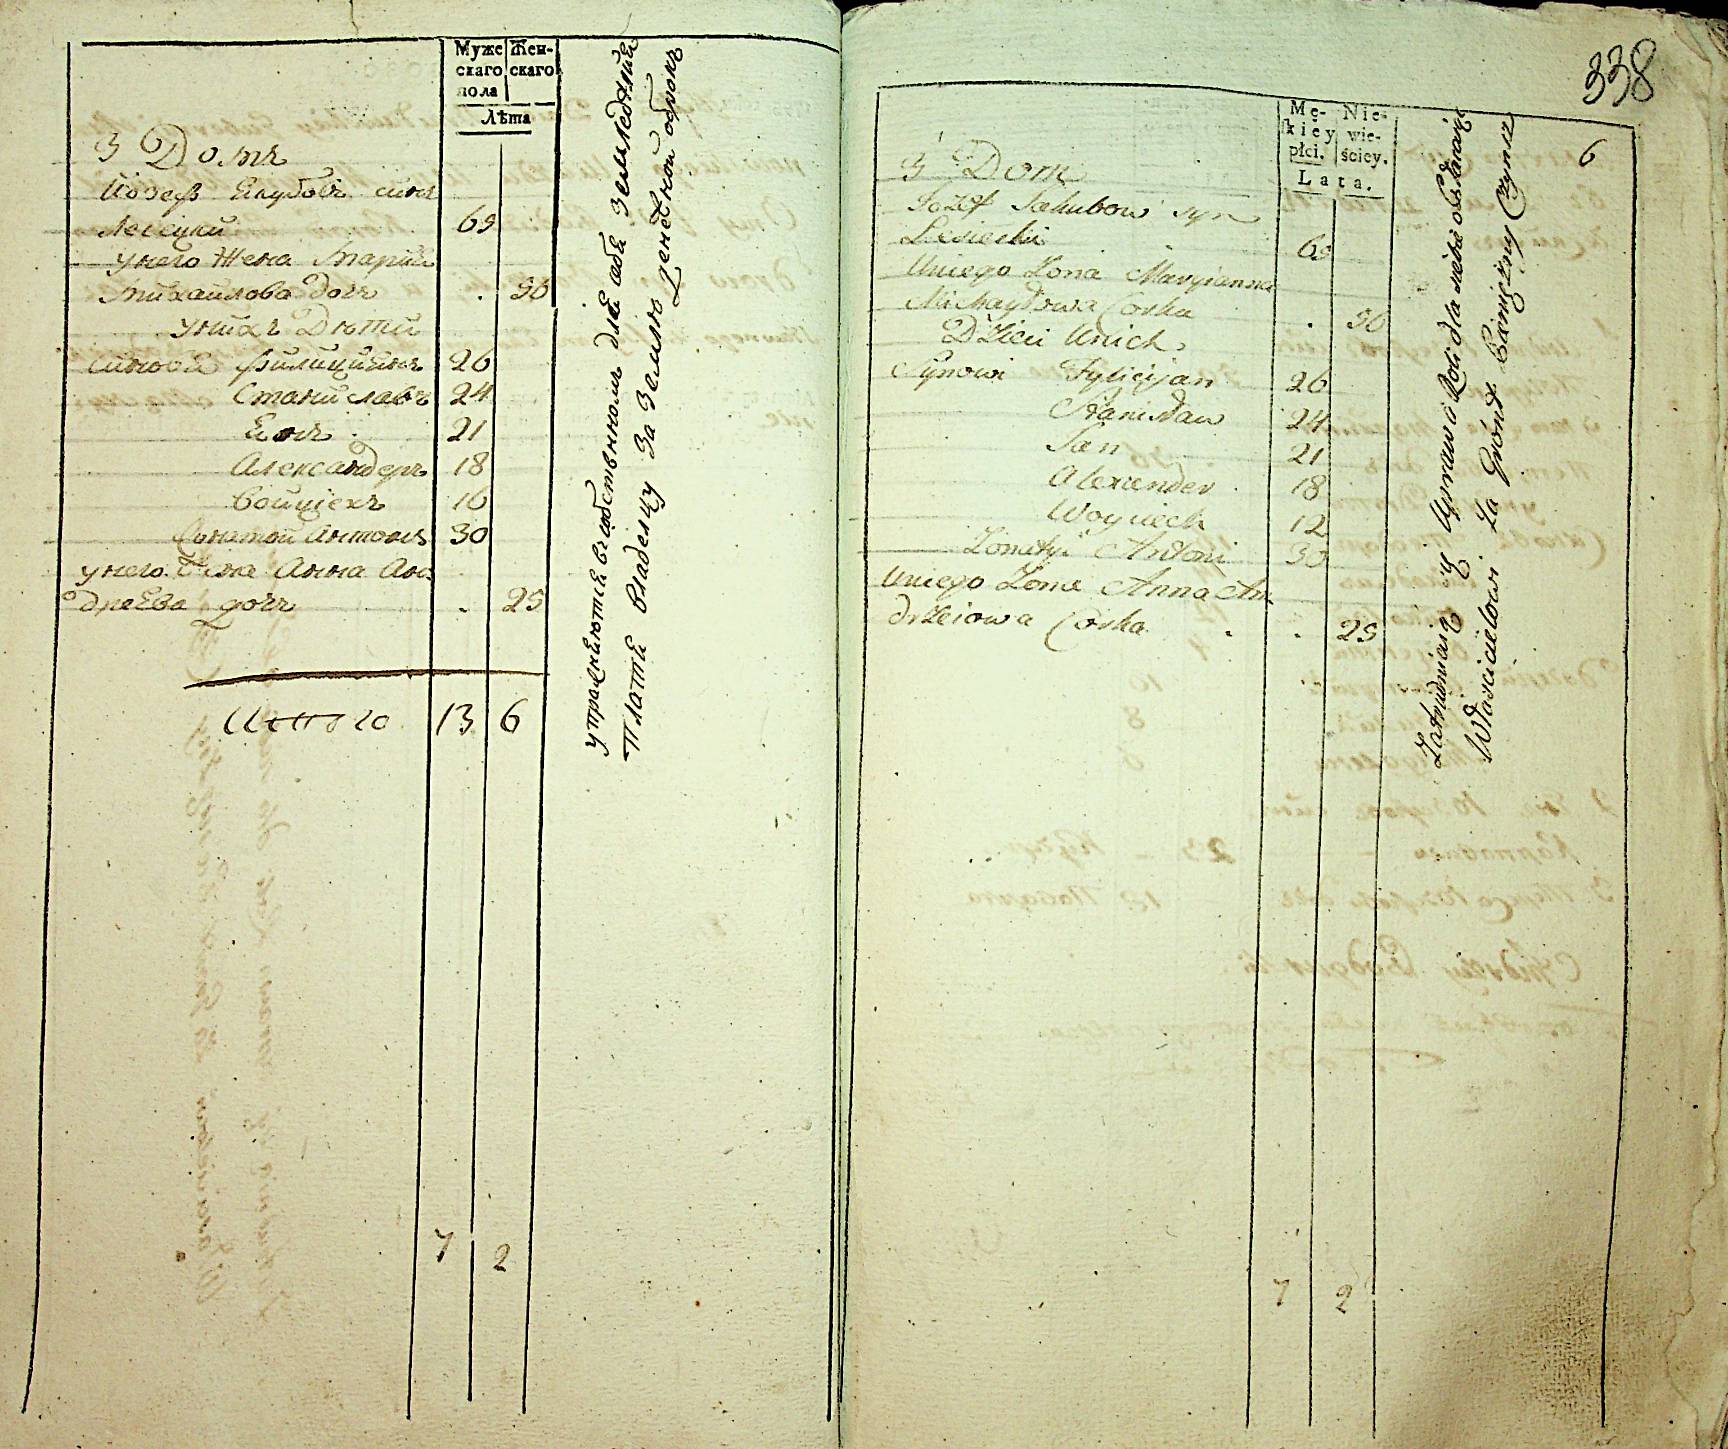 Муже Жен-
скаго скаго
пола
Лѣта
3 Домъ
Іозеф Якубовъ синъ
Лесецкий 69
у него Жена Марий
Михаилова дочь . 56
у нихъ Дѣти
синовя Филицийянъ 26
Станиславъ 24
Янъ 21
Александеръ 18
Войціехъ 16
Антони 30
у него Жена Анна Ан
дреева дочь . 25
Итого 13 6
7 2
упражняются в собственномъ для себя земледѣлие
Платя владелцу за землю
денежной оброкъ
338
6
Mę- Nie-
skiey wie-
płci. ściey.
Lata.
3 Dom
Józef Jakubow syn
Lesiecki 69
Uniego Żona Maryianna
Michayłowa Corka . 56
Dzieci Unich
Synowi Fylicyjan 26
Stanisław 24
Jan 21
Alexander 18
Woyciech 12
Antoni 30
Uniego Żona Anna An
drzeiowa Corka . . 25
7 2
Zatrudniaią się Uprawą Roli dla siebie
Właścicielowi za Grónt Pieniężny Czynsz